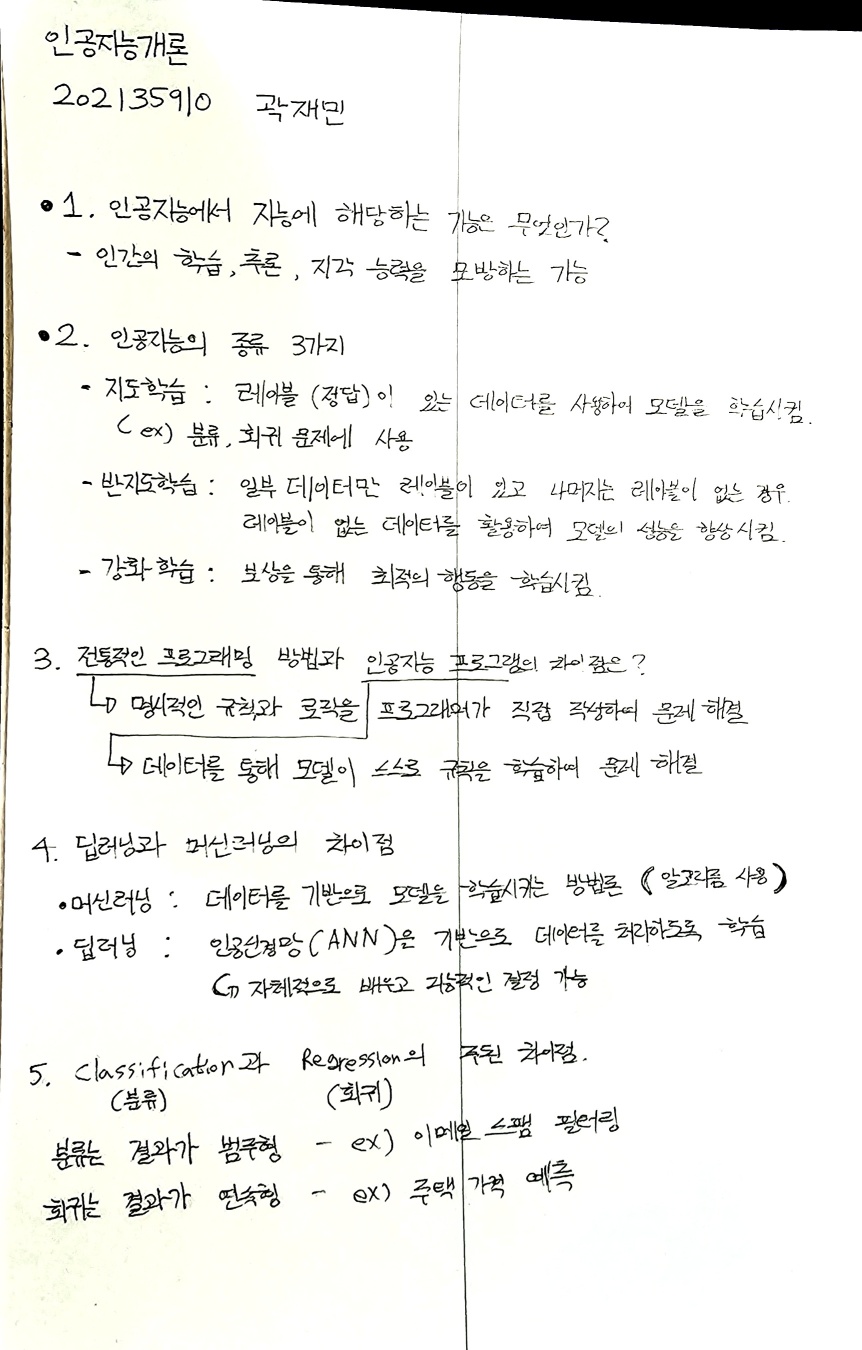 인공지능개론
202135910 곽재민
• 1. 인공지능에서 지능에 해당하는 기능은 무엇인가?
- 인간의 학습, 추론, 지각 능력을 모방하는 기능
• 2. 인공지능의 종류 3가지
- 지도학습 : 레이블 (정답)이 있는 데이터를 사용하여 모델을 학습시킴.
( ex) 분류, 회귀 문제에 사용
- 반지도학습 : 일부 데이터만 레이블이 있고 나머지는 레이블이 없는 경우.
레이블이 없는 데이터를 활용하여 모델의 성능을 향상시킴.
- 강화학습 : 보상을 통해 최적의 행동을 학습시킴.
3. 전통적인 프로그래밍 방법과 인공지능 프로그램의 차이점은?
↳ 명시적인 규칙과 로직을 프로그래머가 직접 작성하여 문제 해결
↳ 데이터를 통해 모델이 스스로 규칙을 학습하여 문제 해결
4. 딥러닝과 머신러닝의 차이점
• 머신러닝 : 데이터를 기반으로 모델을 학습시키는 방법론 (알고리즘 사용)
• 딥러닝 : 인공신경망(ANN)은 기반으로 데이터를 처리하도록 학습
↳ 자체적으로 배우고 지능적인 결정 가능
5. Classification과 Regression의 주된 차이점.
(분류) (회귀)
분류는 결과가 범주형 - ex) 이메일 스팸 필터링
회귀는 결과가 연속형 - ex) 주택 가격 예측